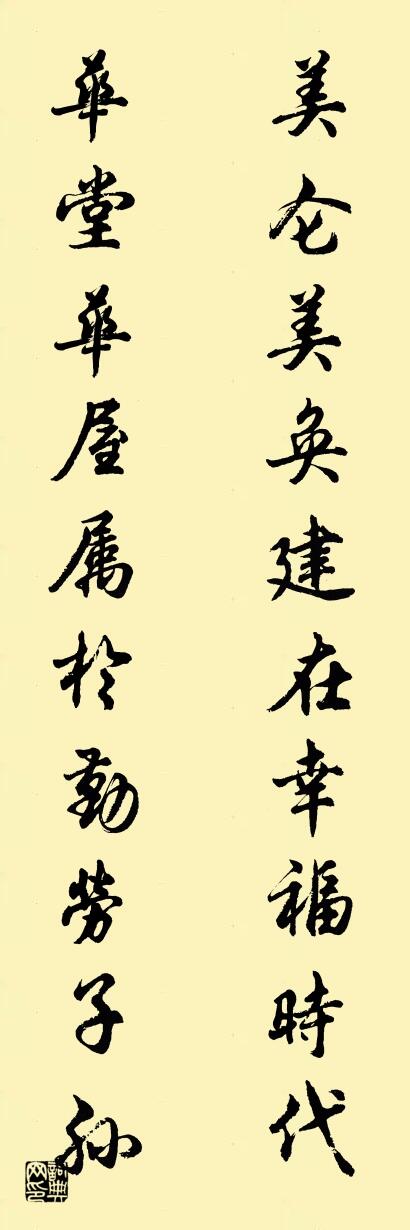 美仑美奂建在幸福時代
華堂華屋属於勤勞子孙